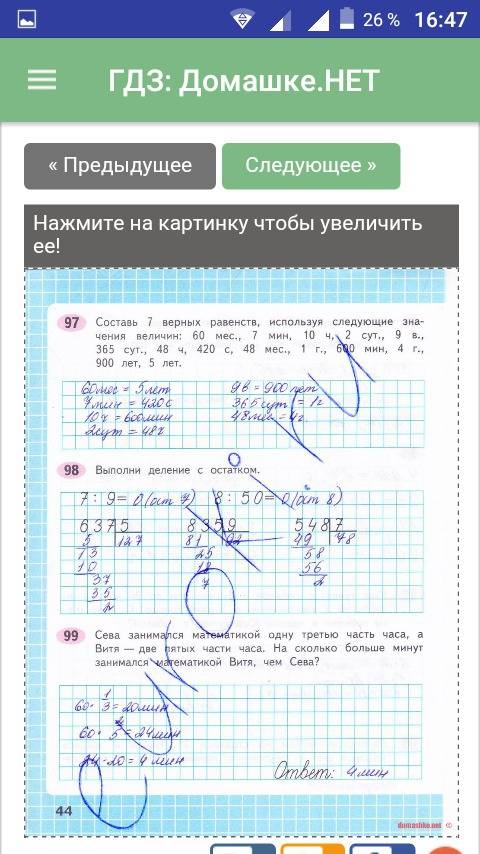 26 % 16:47
ГДЗ: Домашке.НЕТ
« Предыдущее Следующее »
Нажмите на картинку чтобы увеличить
ее!
97 Составь 7 верных равенств, используя следующие зна-
чения величин: 60 мес., 7 мин, 10 ч, 2 сут., 9 в.,
365 сут., 48 ч, 420 с, 48 мес., 1 г., 600 мин, 4 г.,
900 лет, 5 лет.
60 мес = 5 лет 9 в = 900 лет
7 мин = 420 с 365 сут = 1 г
10 ч = 600 мин 48 мес = 4 г
2 сут = 48 ч
98 Выполни деление с остатком.
7 : 9 = 0 (ост 7) 8 : 50 = 0 (ост 8)
637 5 835 9 548 7
5 127 81 92 49 78
13 25 58
10 18 56
37 7 2
35
2
99 Сева занимался математикой одну третью часть часа, а
Витя — две пятых части часа. На сколько больше минут
занимался математикой Витя, чем Сева?
60 · 1/3 = 20 мин
60 · 5 = 24 мин
24 - 20 = 4 мин
Ответ: 4 мин
44
domashke.net ©